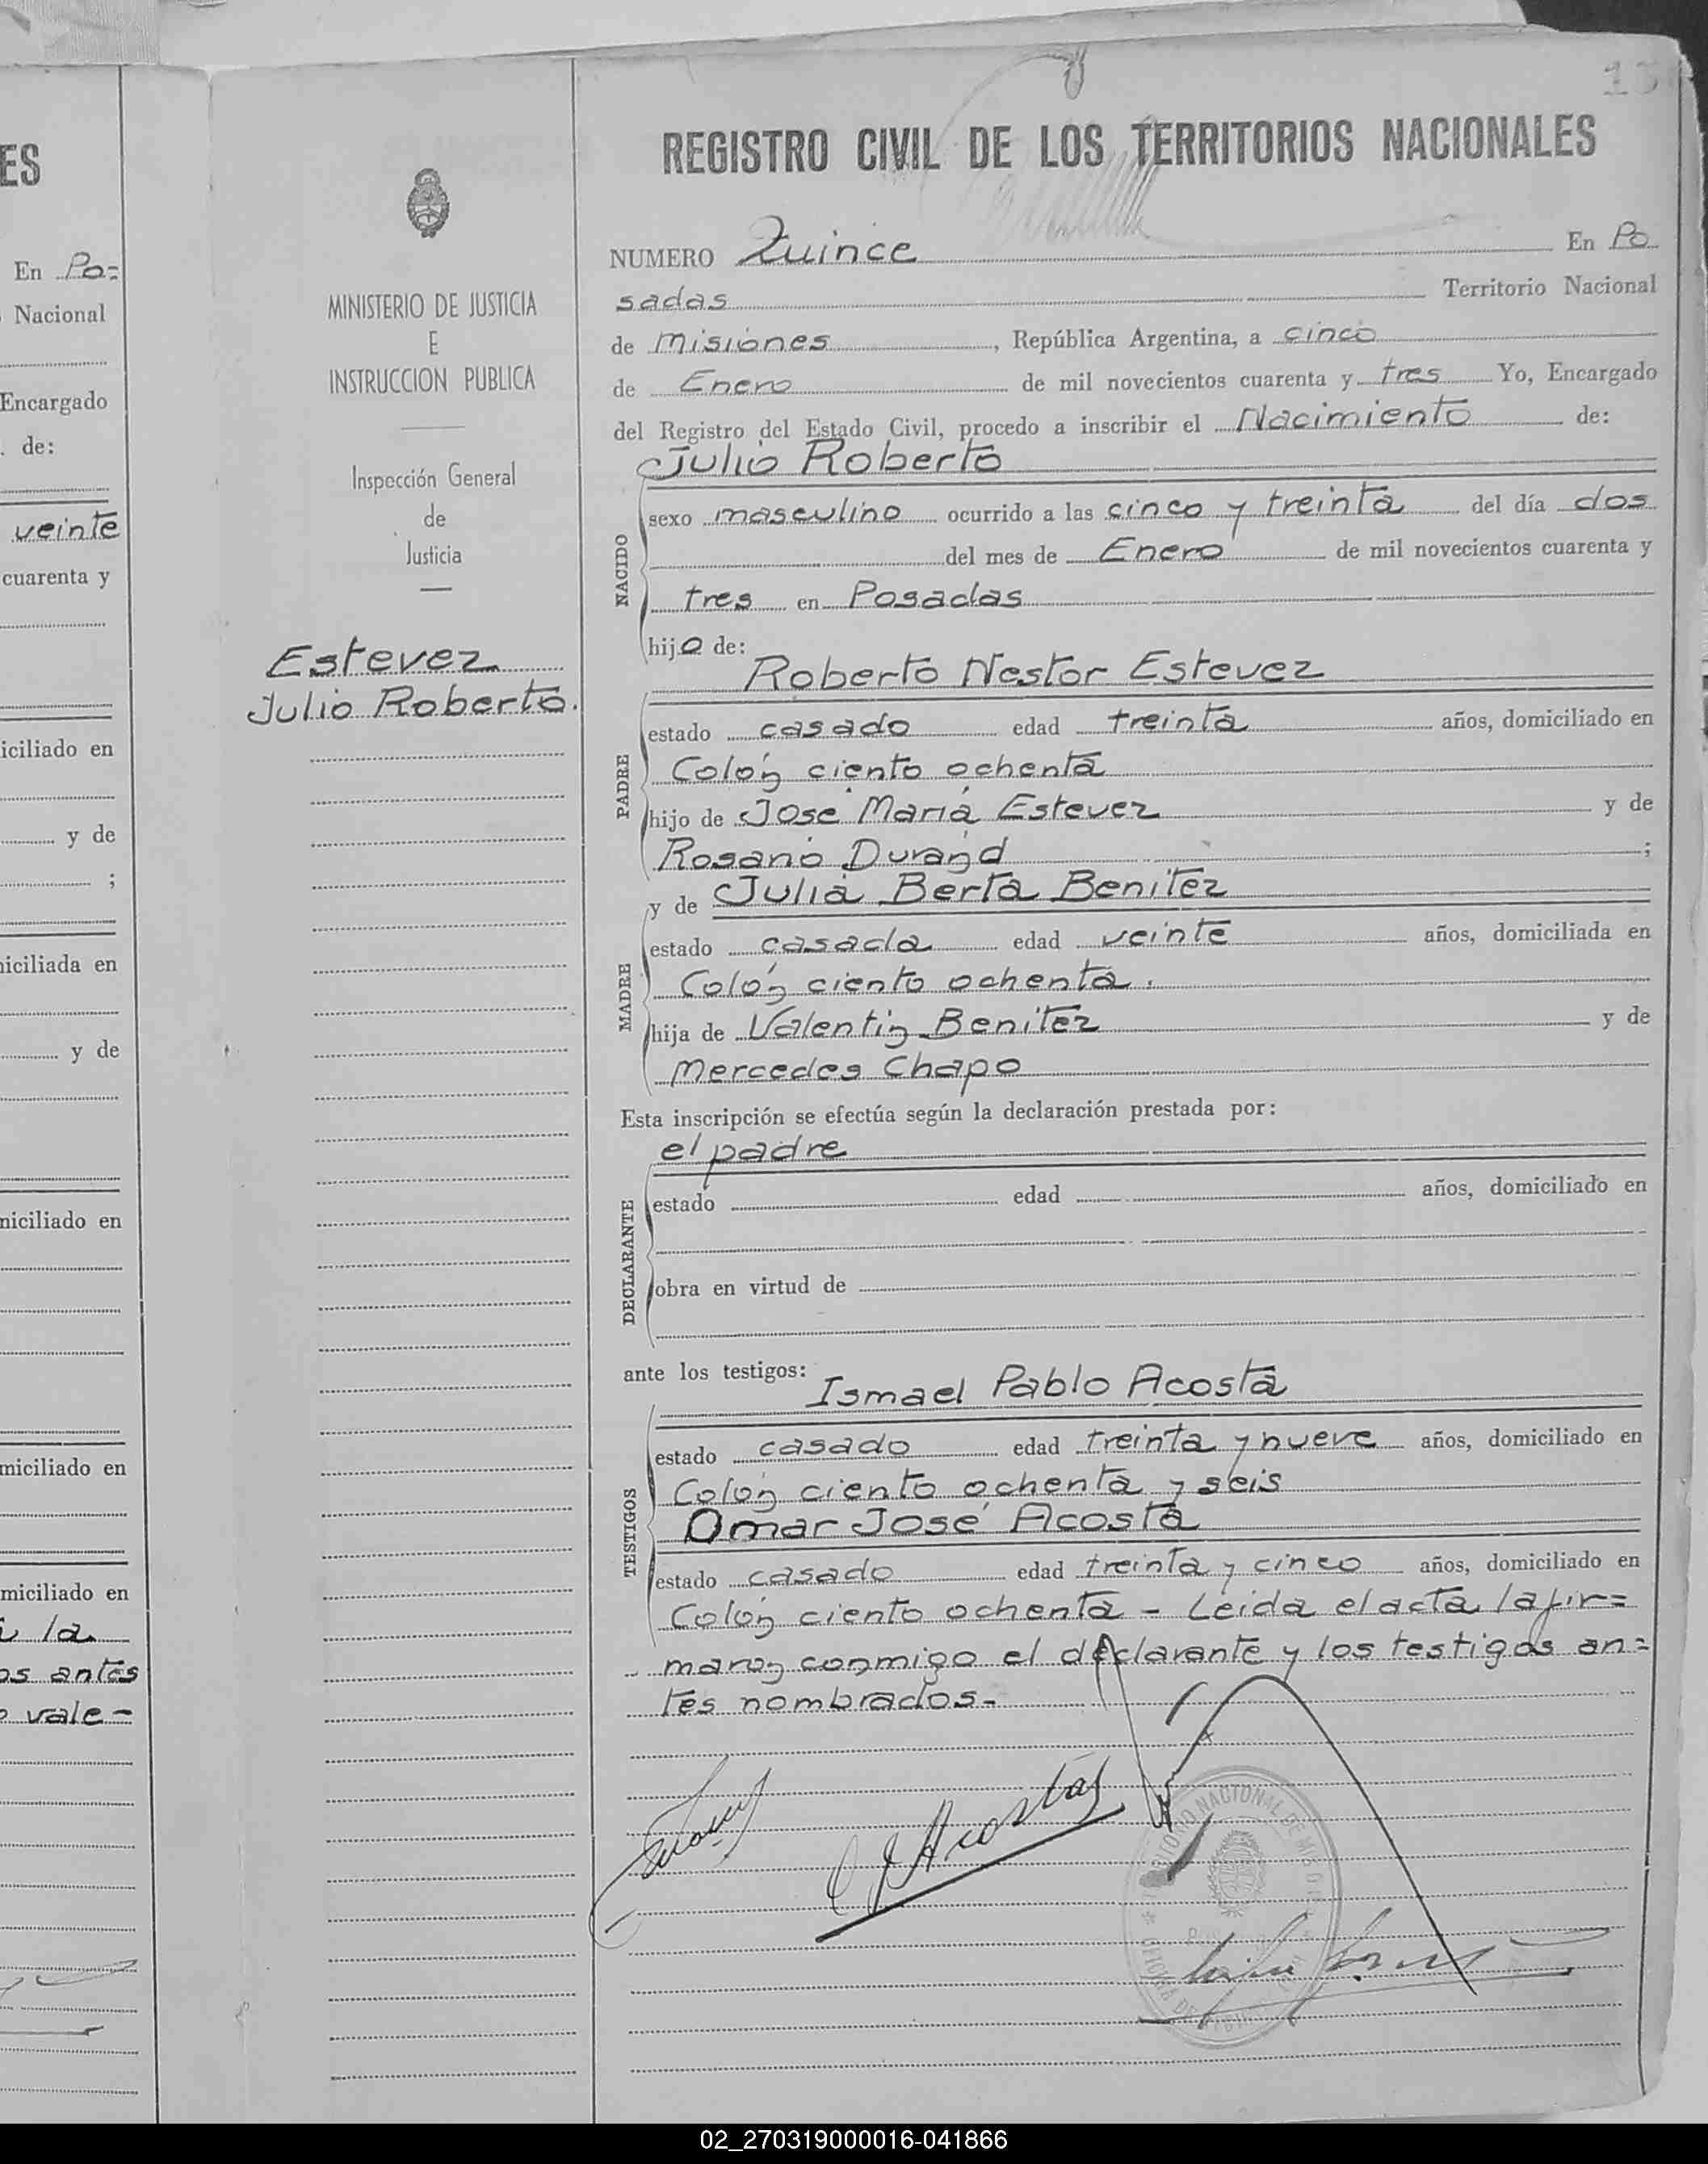 ES
En Po=
Nacional
Encargado
de:
veinte
cuarenta y
iciliado en
y de
;
iciliada en
y de
niciliado en
miciliado en
miciliado en
la
os antes
vale-
MINISTERIO DE JUSTICIA
E
INSTRUCCION PUBLICA
Inspección General
de
Justicia
Estevez
Julio Roberto.
15
REGISTRO CIVIL DE LOS TERRITORIOS NACIONALES
NUMERO Quince En Po
sadas Territorio Nacional
de Misiones, República Argentina, a cinco
de Enero de mil novecientos cuarenta y tres Yo, Encargado
del Registro del Estado Civil, procedo a inscribir el Nacimiento de:
Julio Roberto
NACIDO
sexo masculino ocurrido a las cinco y treinta del día dos
del mes de Enero de mil novecientos cuarenta y
tres en Posadas
hijo de:
Roberto Nestor Estevez
PADRE
estado casado edad treinta años, domiciliado en
Colón ciento ochenta
hijo de José María Estevez y de
Rosario Durand ;
y de Julia Berta Benitez
MADRE
estado casada edad veinte años, domiciliada en
Colón ciento ochenta.
hija de Valentin Benitez y de
Mercedes Chapo
Esta inscripción se efectúa según la declaración prestada por:
el padre
DECLARANTE
estado edad años, domiciliado en
obra en virtud de
ante los testigos:
Ismael Pablo Acosta
TESTIGOS
estado casado edad treinta y nueve años, domiciliado en
Colón ciento ochenta y seis
Omar José Acosta
estado casado edad treinta y cinco años, domiciliado en
Colón ciento ochenta - Leida el acta la fir=
maron conmigo el declarante y los testigos an=
tes nombrados.-
Acosta
02_270319000016-041866